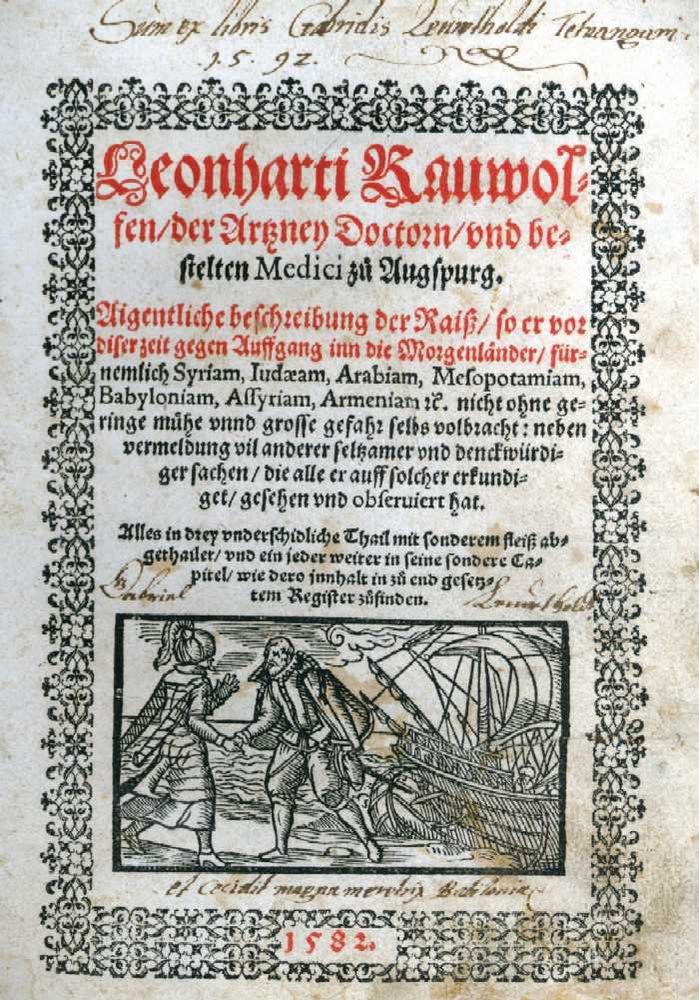 Sum ex libris Gabrielis
.1.5.92.
Leonharti Rauwol⸗
fen/der Artzney Doctorn/vnd be⸗
stelten Medici zů Augspurg.
Aigentliche beschreibung der Raiß/ so er vor
diser zeit gegen Auffgang inn die Morgenländer/ für⸗
nemlich Syriam, Iudæam, Arabiam, Mesopotamiam,
Babyloniam, Assyriam, Armeniam ꝛc. nicht ohne ge⸗
ringe mühe vnnd grosse gefahr selbs volbracht: neben
vermeldung vil anderer seltzamer vnd denckwürdi⸗
ger sachen/ die alle er auff solcher erkundi⸗
get/ gesehen vnd obseruiert hat.
Alles in drey vnderschidliche Thail mit sonderem fleiß ab⸗
gethailet/ vnd ein jeder weiter in seine sondere Ca⸗
pitel/ wie dero innhalt in zů end gesetz⸗
tem Register zůfinden.
Gabriel
et cecidit magna meretrix Babilonia
1582.